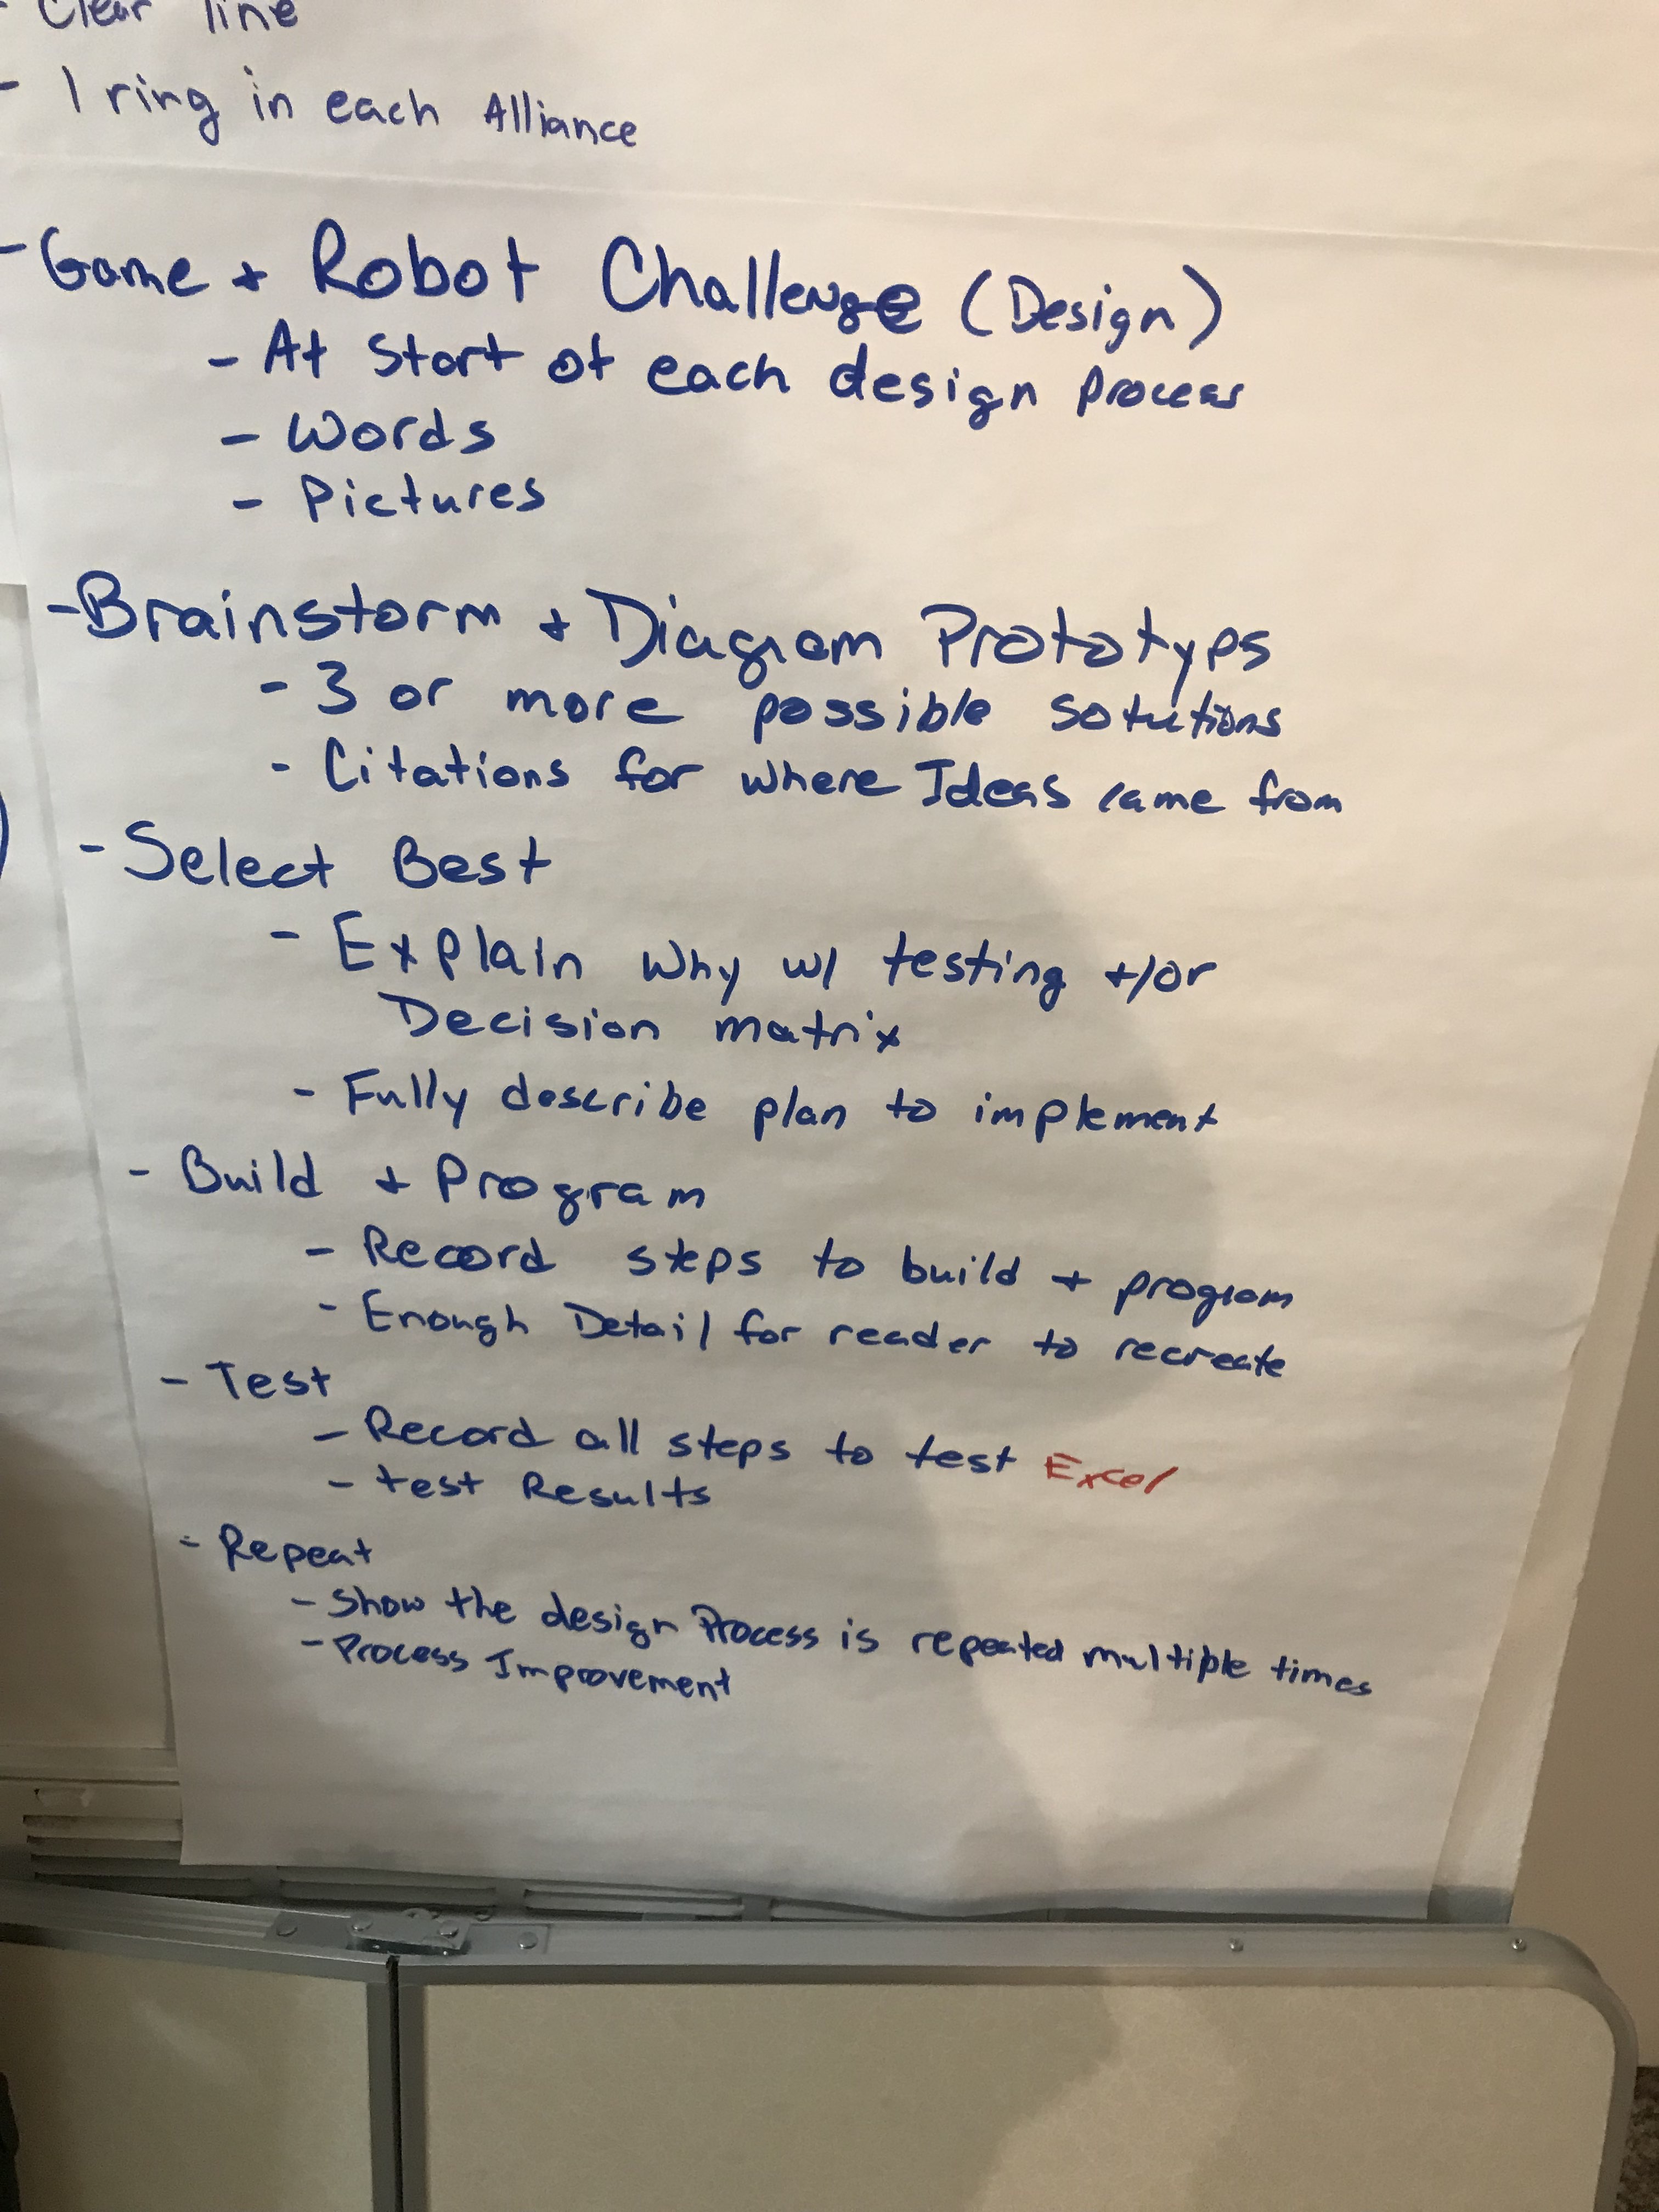 - Clear line
- 1 ring in each Alliance
- Game + Robot Challenge (Design)
- At Start of each design process
- Words
- Pictures
- Brainstorm + Diagram Prototyps
- 3 or more possible solutions
- Citations for where Ideas came from
- Select Best
- Explain Why w/ testing +/or
Decision matrix
- Fully describe plan to implement
- Build + Program
- Record steps to build + program
- Enough Detail for reader to recreate
- Test
- Record all steps to test Excel
- test Results
- Repeat
- Show the design Process is repeated multiple times
- Process Improvement